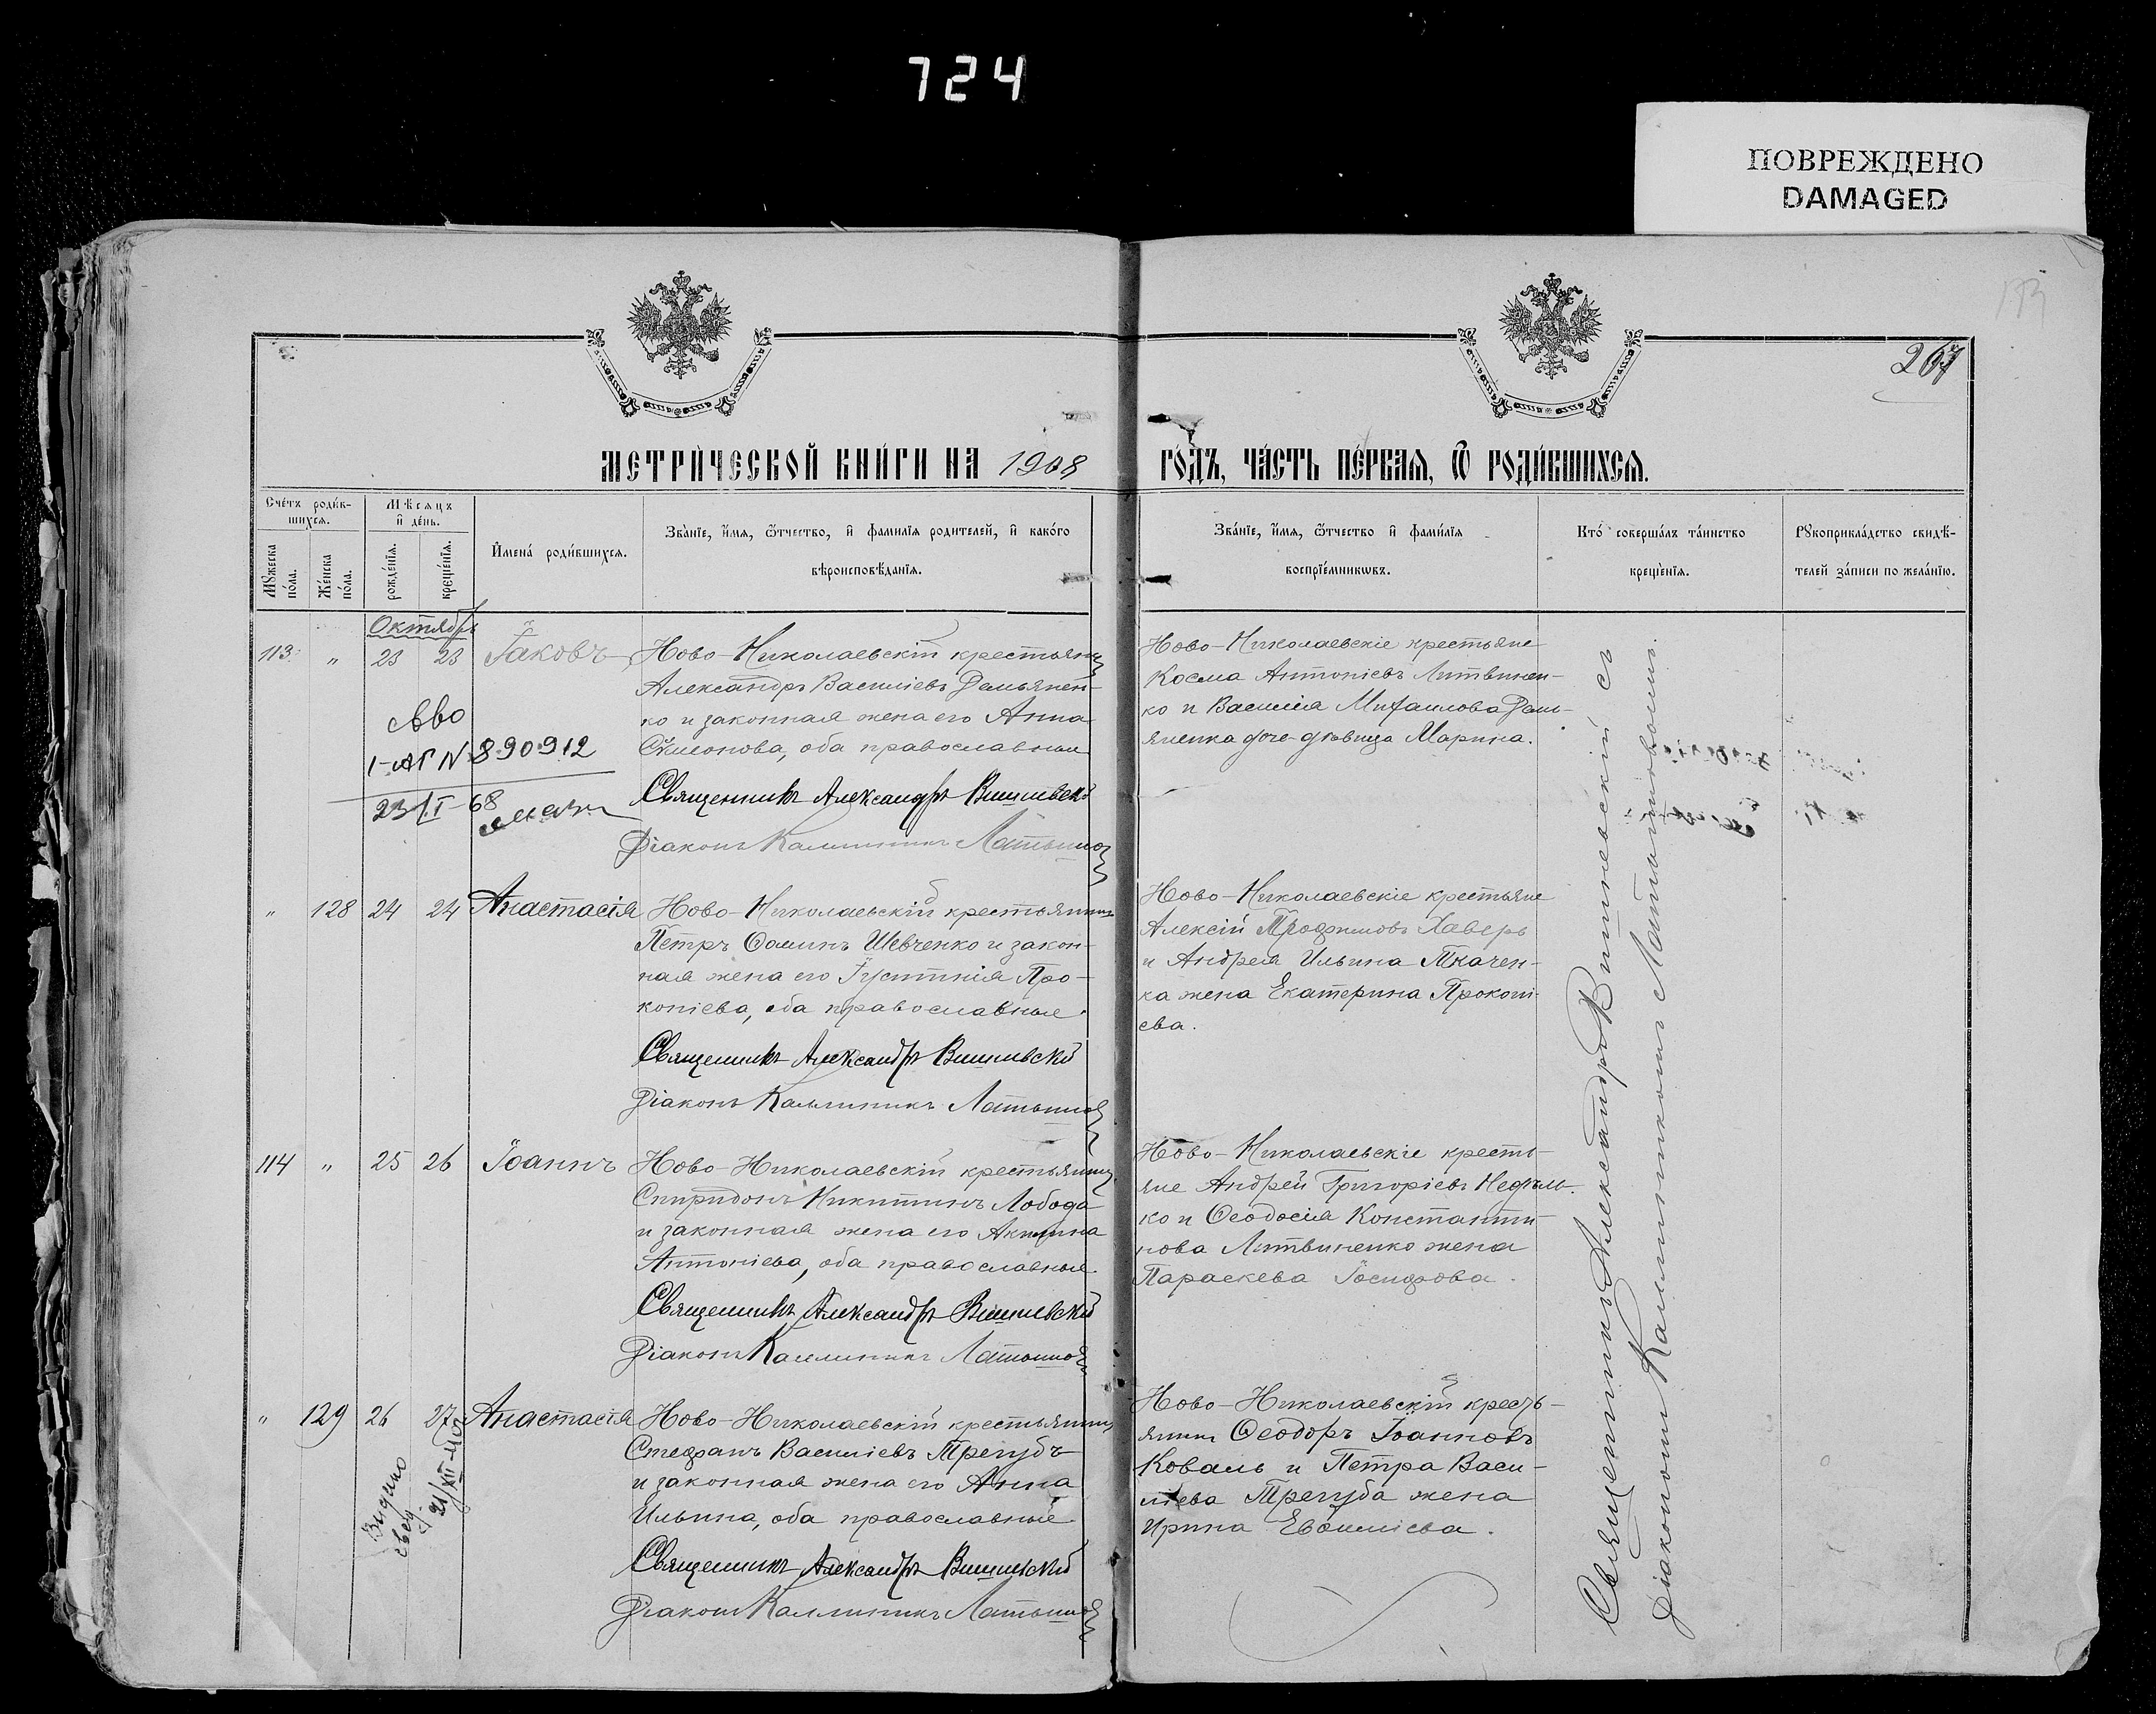 724
ПОВРЕЖДЕНО
DAMAGED
267
МЕТРИ́ЧЕСКОЙ КНИ́ГИ НА 1908 ГО́ДЪ, ЧА́СТЬ ПЕ́РВАѦ, Ѿ РОДИ́ВШИХСѦ.
Сче́тъ роди́в-
шихсѧ.
Мѣсѧцъ
и̂ де́нь.
Мꙋжеска
по́ла.
Же́нска
по́ла.
рожде́нїѧ.
креще́нїѧ.
И̂мена́ роди́вшихсѧ.
Зва́нїе, и́мѧ, ѻ҆́тчество, и̂ фами́лїѧ родителей, и̂ како́го
вѣроисповѣ́данїѧ.
Зва́нїе, и́мѧ, ѻ҆́тчество и̂ фами́лїѧ
воспрїе́мникѡвъ.
Кто́ соверша́лъ та́инство
креще́нїѧ.
Рꙋкоприкла́дство свидѣ́-
телей за́писи по жела́нїю.
Октябрь
113 " 23 23 Іаковъ
Ново-Николаевскій крестьянинъ
Александръ Василіевъ Демьянен-
ко и законная жена его Анна
Сѵмеонова, оба православные
Священникъ Александръ Вишневскій
Діаконъ Каллиникъ Матвих
Ново-Николаевскіе крестьяне
Косма Антоніевъ Литвинен-
ко и Василія Михаилова Демь-
яненка дочь-дѣвица Марина.
1-АГ N 890912
23/I-68
" 128 24 24 Анастасія
Ново-Николаевскій крестьянинъ
Петръ Ѳоминъ Шевченко и закон-
ная жена его Іустинія Про-
копіева, оба православные.
Священникъ Александръ Вишневскій
Діаконъ Каллиникъ
Ново-Николаевскіе крестьяне
Алексій Трофимовъ Хаверь
и Андрея Ильина Ткачен-
ка жена Екатерина Прокопі-
ева.
114 " 25 26 Іоаннъ
Ново-Николаевскій крестьянинъ
Спиридонъ Никитинъ Лобода
и законная жена его Акилина
Антоніева, оба православные.
Священникъ Александръ Вишневскій
Діаконъ Каллиникъ
Ново-Николаевскіе кресть-
яне Андрей Григоріевъ
ко и Ѳеодосія Константи-
нова Литвиненко жена
Параскева Іосифова.
" 129 26 27 Анастасія
Ново-Николаевскій крестьянинъ
Стефанъ Василіевъ Трегубъ
и законная жена его Анна
Ильина, оба православные.
Священникъ Александръ Вишневскій
Діаконъ Каллиникъ
Ново-Николаевскій кресть-
янинъ Ѳеодоръ Іоанновъ
Коваль и Петра Васи-
лiева Трегуба жена
Ирина Евѳиміева.
Видано
21/XII-40
Священникъ Александръ Вишневскій съ
Діакономъ Каллиникомъ